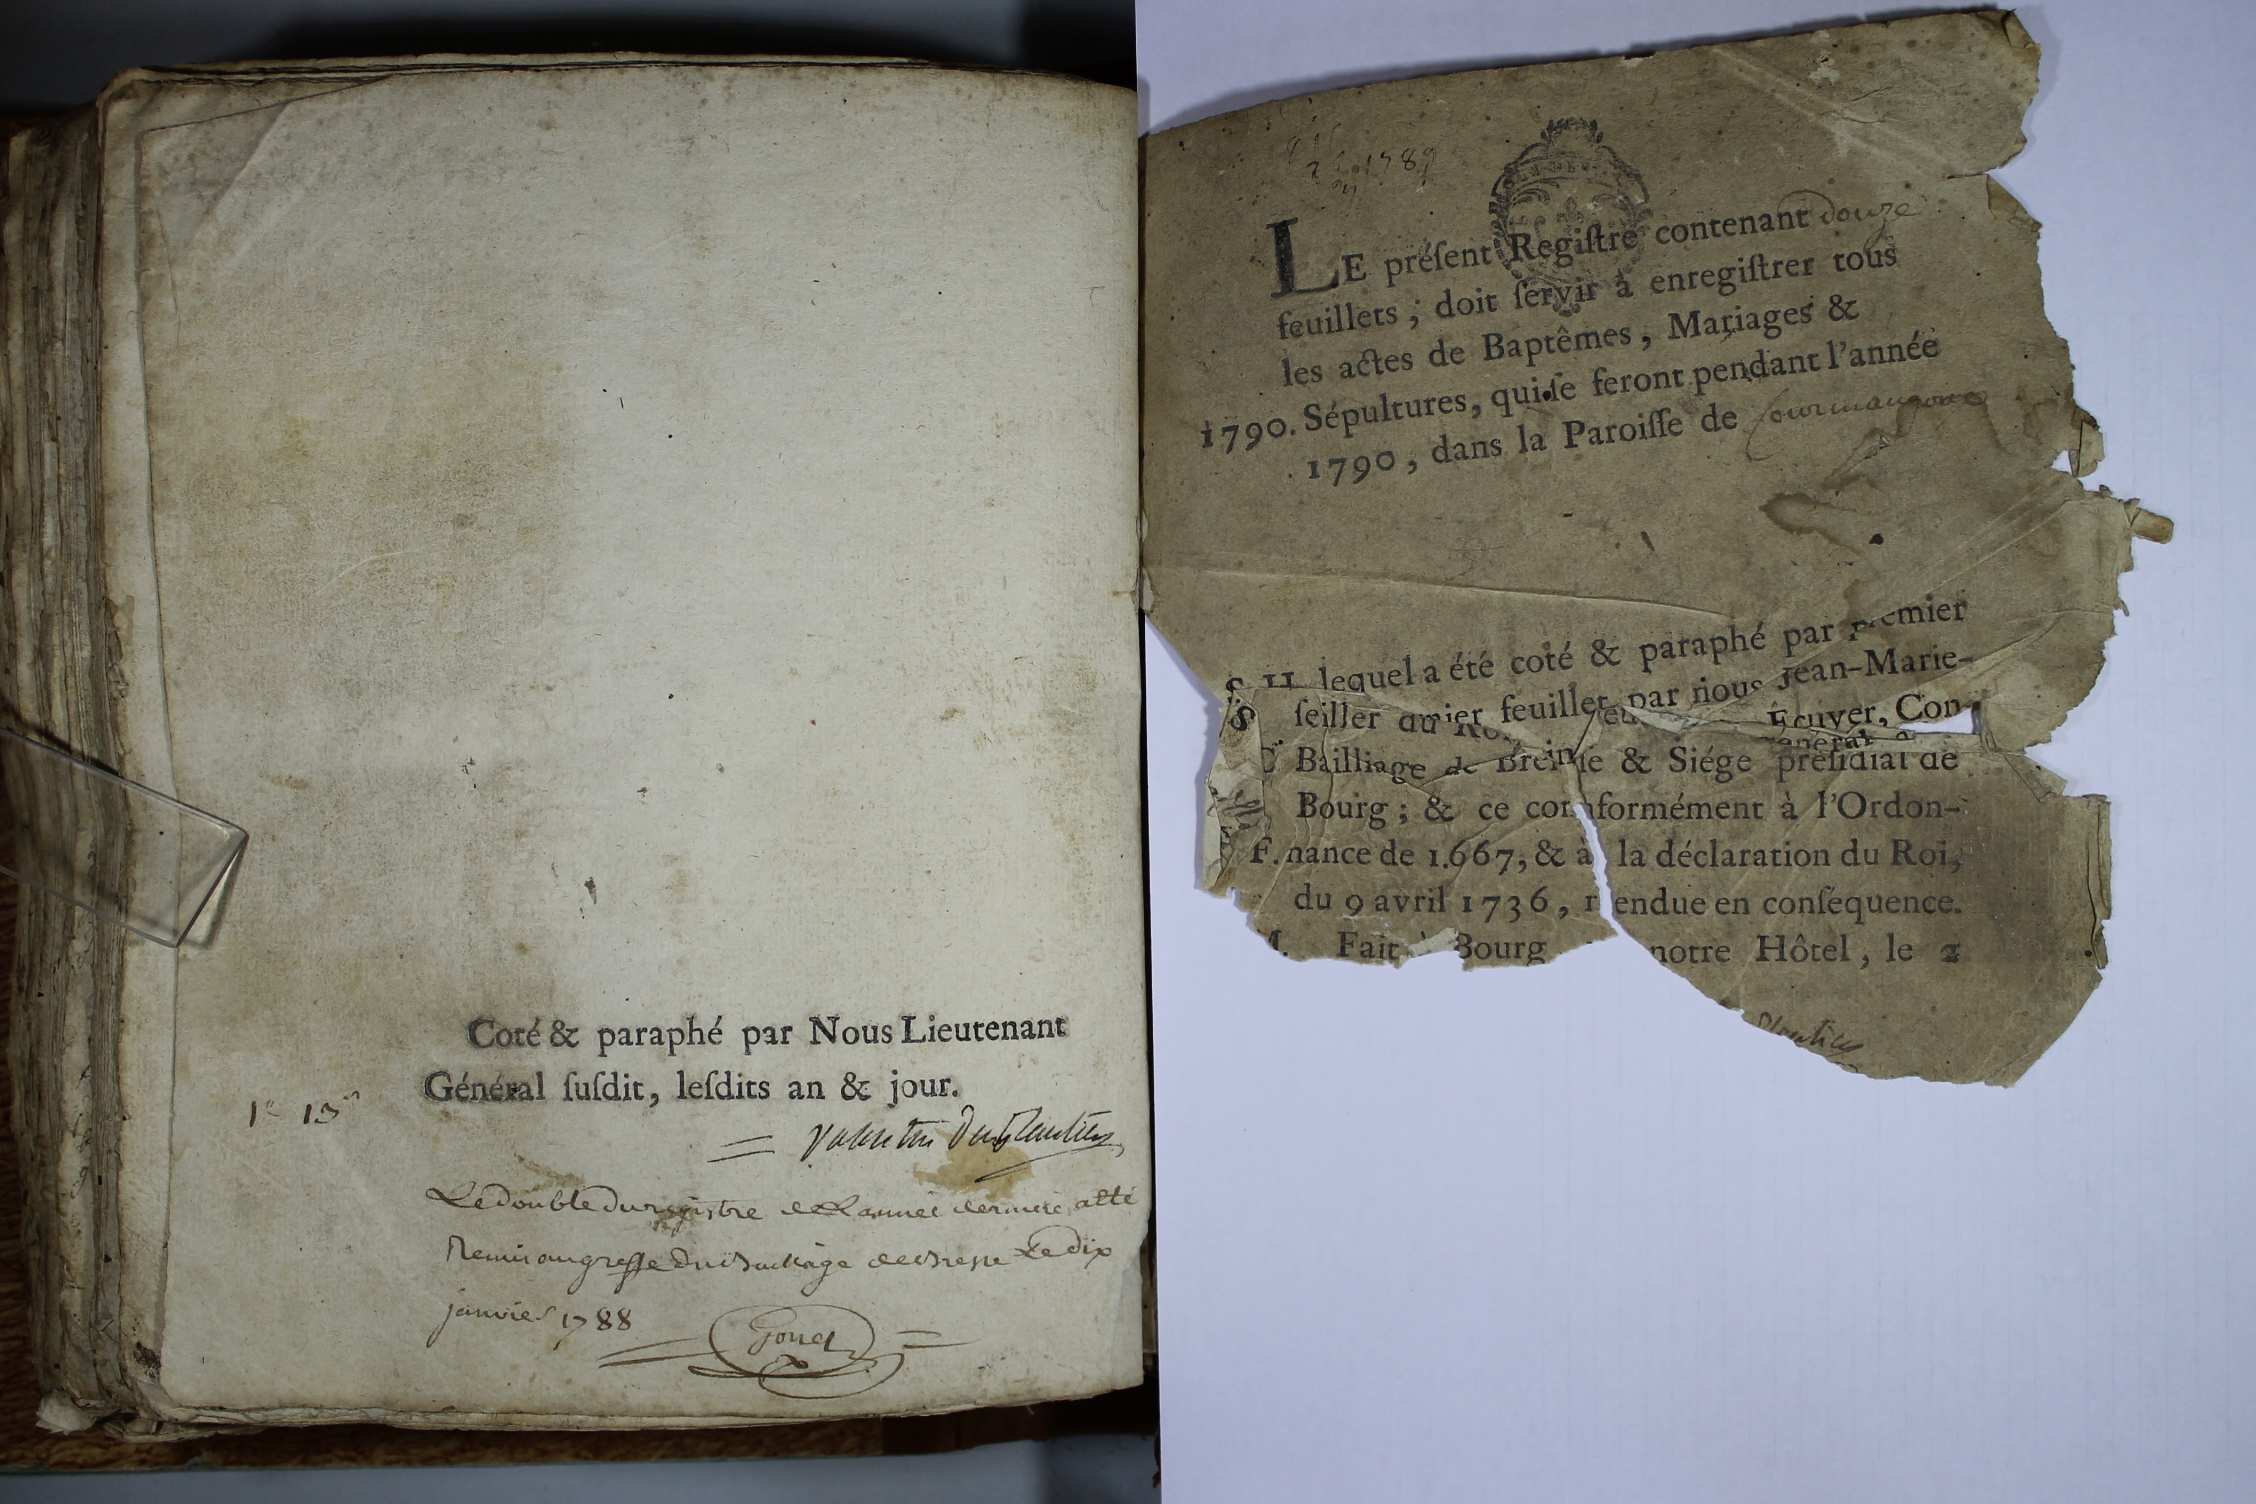 Coté & paraphé par Nous Lieutenant
Général ſuſdit, leſdits an & jour.
1e 13e
Valentin Duplantier
Le double du registre de L'année derniere a été
Remis au greffe du Bailliage de Bresse Le dix
janvier 1788
Gonet
1789
LE préſent Regiſtre contenant douze
feuillets ; doit ſervir à enregiſtrer tous
les actes de Baptêmes, Mariages &
1790. Sépultures, qui ſe feront pendant l'année
1790, dans la Paroiſſe de Courmangoux
lequel a été coté & paraphé par premier
feuillet par nous Jean-Marie-
Ecuyer, Con-
ſeiller du
Bailliage de Breſſe & Siége préſidial de
Bourg ; & ce conformément à l'Ordon-
F. nance de 1667, & à la déclaration du Roi,
du 9 avril 1736, rendue en conſequence.
M. Fait à Bourg notre Hôtel, le 2